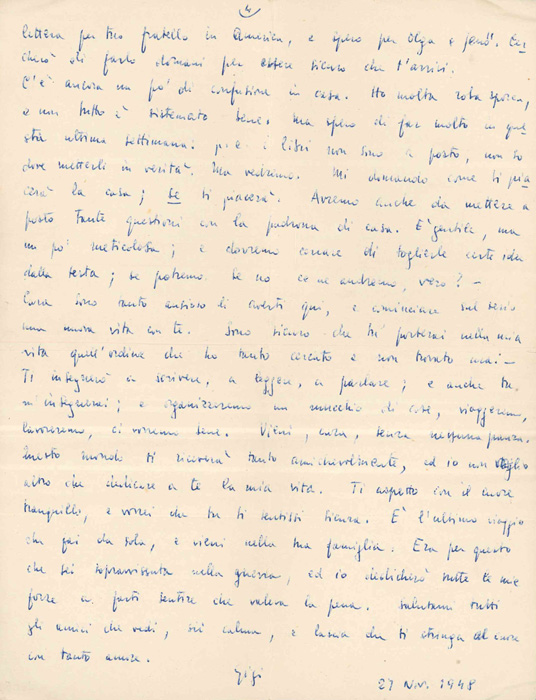 4
lettera per tuo fratello in America, e spero per Olga e Jenö. Cer-
cherò di farlo domani per essere sicuro che t'arrivi.
C'è ancora un po' di confusione in casa. Ho molta roba sporca,
e non tutto è sistemato bene. Ma spero di far molto in que-
sta ultima settimana: p. e. i libri non sono a posto, non so
dove metterli in verità. Ma vedremo. Mi domando come ti pia
cerà la casa; se ti piacerà. Avremo anche da mettere a
posto tante questioni con la padrona di casa. È gentile, ma
un po' meticolosa; e dovremo cercare di togliere certe idee
dalla testa; se potremo. Se no ce ne andremo, vero? –
Cara sono tanto ansioso di averti qui, e cominciare sul serio
una nuova vita con te. Sono sicuro che tu porterai nella mia
vita quell'ordine che ho tanto cercato e non trovato mai. –
Ti insegnerò a scrivere, a leggere, a parlare; e anche tu
m'insegnerai; e organizzeremo un mucchio di cose, viaggeremo,
lavoreremo, ci vorremo bene. Vieni, cara, senza nessuna paura.
Questo mondo ti riceverà tanto amichevolmente, ed io non voglio
altro che dedicare a te la mia vita. Ti aspetto con il cuore
tranquillo, e vorrei che tu ti sentissi sicura. È l'ultimo viaggio
che fai da sola, e vieni nella tua famiglia. Era per questo
che sei sopravvissuta nella guerra, ed io dedicherò tutte le mie
forze a farti sentire che valeva la pena. Salutami tutti
gli amici che vedi, sii calma, e lascia che ti stringa al cuore
con tanto amore.
Gigi
27 Nov. 1948